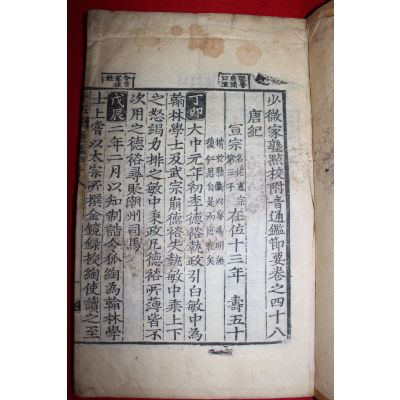 少微家塾點校附音通鑑節要卷之四十八
唐紀
宣宗 名忱憲宗第三子 在位十三年 壽五十
復仁恩自是而唐衰矣
丁卯 大中元年初李德裕執政引白敏中為
翰林學士及武宗崩德裕失埶敏中乘上下
之怒竭力排之敏中秉政凡德裕所薄皆不
次用之德裕尋貶潮州司馬
戊辰 二年二月以知制誥令狐綯為翰林學
士上嘗以太宗所撰金鏡録授綯使讀之至